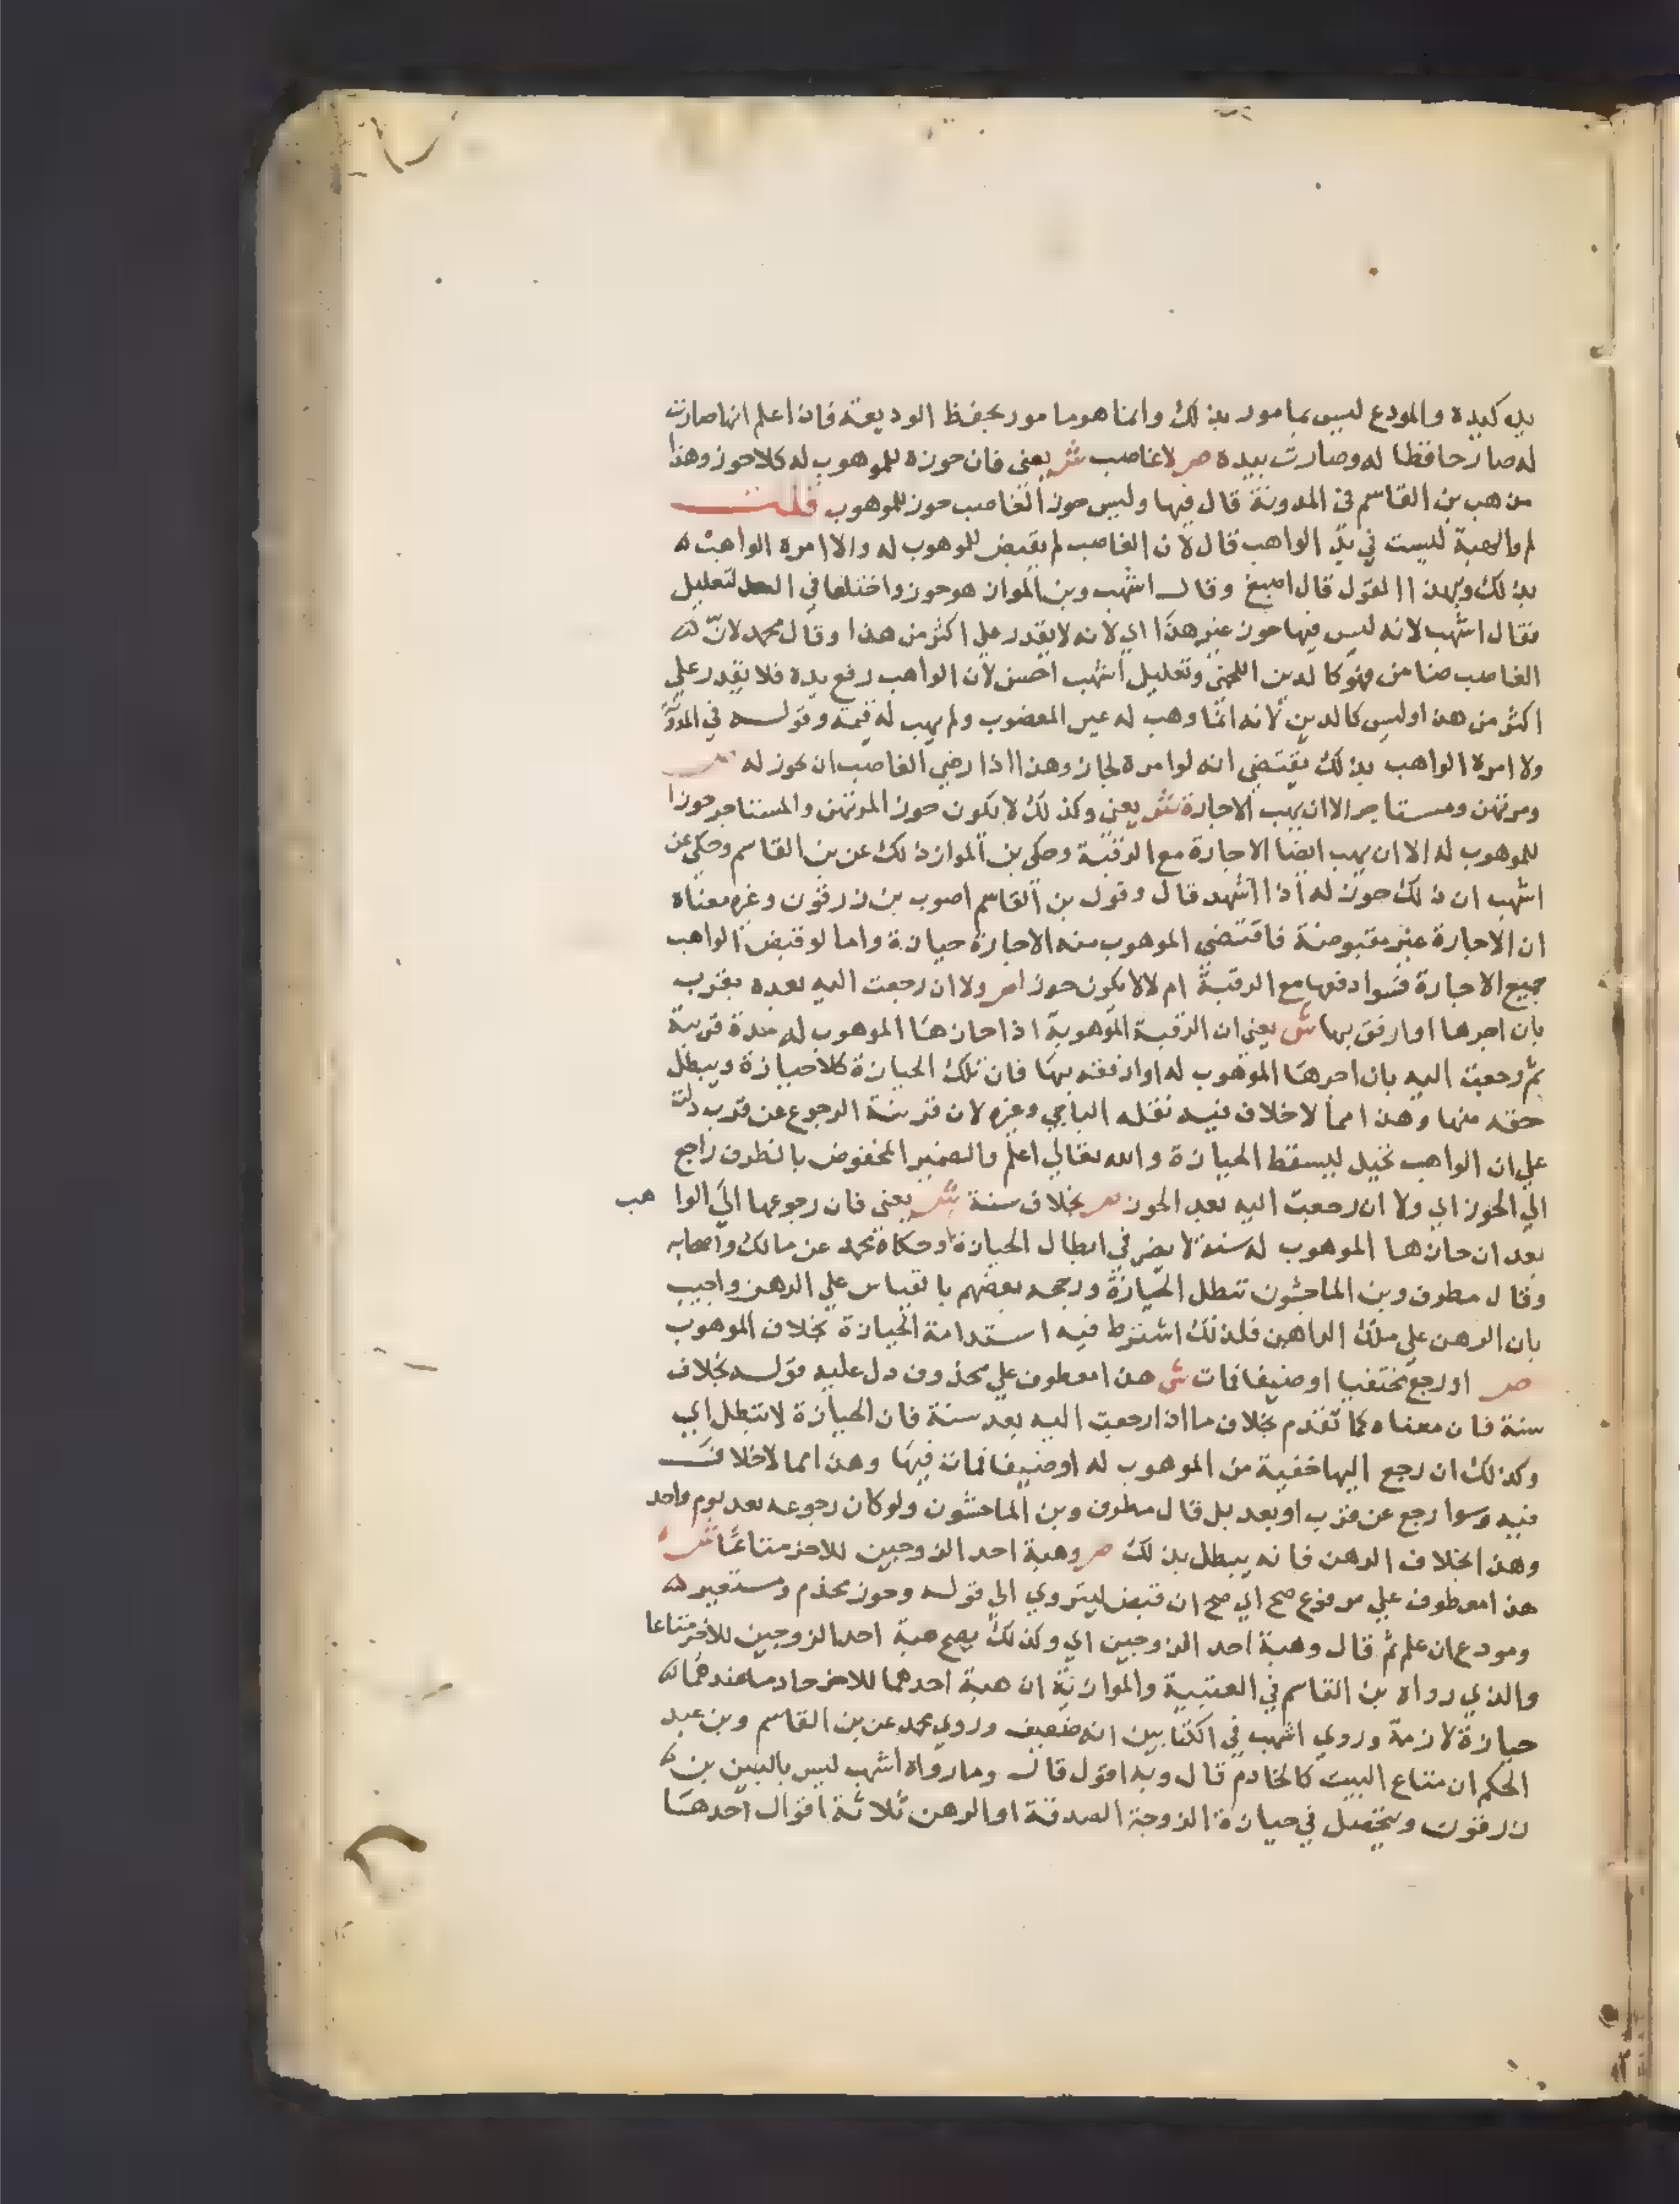 يده كيده والمودع ليس بمامور بذلك وانما هو مامور بحفظ الوديعة فاذا علم انها صارت
له صار حافظا له وصارت بيده صر لا غاصب شر يعني فان حوزه للموهوب له كلا حوز وهذا
مذهب بن القاسم في المدونة قال فيها وليس حوز الغاصب حوز للموهوب قلت
لم والهبة ليست في يد الواهب قال لان الغاصب لم يقبض للموهوب له ولا امره الواهب
بذلك وبهذا القول قال اصبغ وقال اشهب وبن المواز هو حوز واختلفا في التعليل
فقال اشهب لانه ليس فيها حوز غير هذا اي لانه لا يقدر علي اكثر من هذا وقال محمد لان
الغاصب ضامن فهو كالدين اللخمي وتعليل اشهب احسن لان الواهب رفع يده فلا يقدر علي
اكثر من هذا وليس كالدين لانه انما وهب له عين المغصوب ولم يهب له قيمته وقوله في المدونة
ولا امره الواهب بذلك يقتضي انه لو امره لجاز وهذا اذا رضي الغاصب ان يحوز له صر
ومرتهن ومستاجر الا ان يهب الاجارة شر يعني وكذلك لا يكون حوز المرتهن والمستاجر حوزا
للموهوب له الا ان يهب ايضا الاجارة مع الرقبة وحكي بن المواز ذلك عن بن القاسم وحكي عن
اشهب ان ذلك حوز له اذا اشهد قال وقول بن القاسم اصوب بن زرقون وغيره معناه
ان الاجارة غير مقبوضة فاقتضي الموهوب منه الاجارة حيازة واما لو قبض الواهب
جميع الاجارة فسوا دفعها مع الرقبة ام لا لا يكون حوزا صر ولا ان رجعت اليه بعده بقرب
بان اجرها او ارفق بها ش يعني ان الرقبة الموهوبة اذا حازها الموهوب له مدة قريبة
ثم رجعت اليه بان اجرها الموهوب له او ارفقه بها فان تلك الحيازة كلا حيازة ويبطل
حقه منها وهذا مما لا خلاف فيه نقله الباجي وغيره لان قرينة الرجوع عن قرب دلت
علي ان الواهب تحيل ليسقط الحيازة والله تعالي اعلم والضمير المخفوض بالظرف راجع
الي الحوز اي ولا ان رجعت اليه بعد الحوز صر بخلاف سنة شر يعني فان رجوعها الي الوا هب
بعد ان حازها الموهوب له سنة لا يضر في ابطال الحيازة وحكاه محمد عن مالك واصحابه
وقال مطرف وبن الماجشون تبطل الحيازة ورجحه بعضهم بالقياس علي الرهن واجيب
بان الرهن علي ملك الراهن فلذلك اشترط فيه استدامة الحيازة بخلاف الموهوب
صر او رجع مختفيا او ضيفا فمات ش هذا معطوف علي محذوف دل عليه قوله بخلاف
سنة فان معناه كما تقدم بخلاف ما اذا رجعت اليه بعد سنة فان الحيازة لا تبطل اي
وكذلك ان رجع اليها خفية من الموهوب له او ضيفا فمات فيها وهذا مما لا خلاف
فيه وسوا رجع عن قرب او بعد بل قال مطرف وبن الماجشون ولو كان رجوعه بعد يوم واحد
وهذا بخلاف الرهن فانه يبطل بذلك صر وهبة احد الزوجين للاخر متاعا شر
هذا معطوف علي مرفوع صح اي صح ان قبض ليتروي الي قوله وحوز مخدم ومستعير
ومودع ان علم ثم قال وهبة احد الزوجين اي وكذلك يصح هبة احد الزوجين للاخر متاعا
والذي رواه بن القاسم في العتبية والموازية ان هبة احدهما للاخر خادما عندهما
حيازة لازمة وروي اشهب في الكتابين انه ضعيف وروي محمد عن بن القاسم وبن عبد
الحكم ان متاع البيت كالخادم قال وبه اقول قال وما رواه اشهب ليس بالبين بن
زرقون ويتحصل في حيازة الزوجة الصدقة او الرهن ثلاثة اقوال احدها